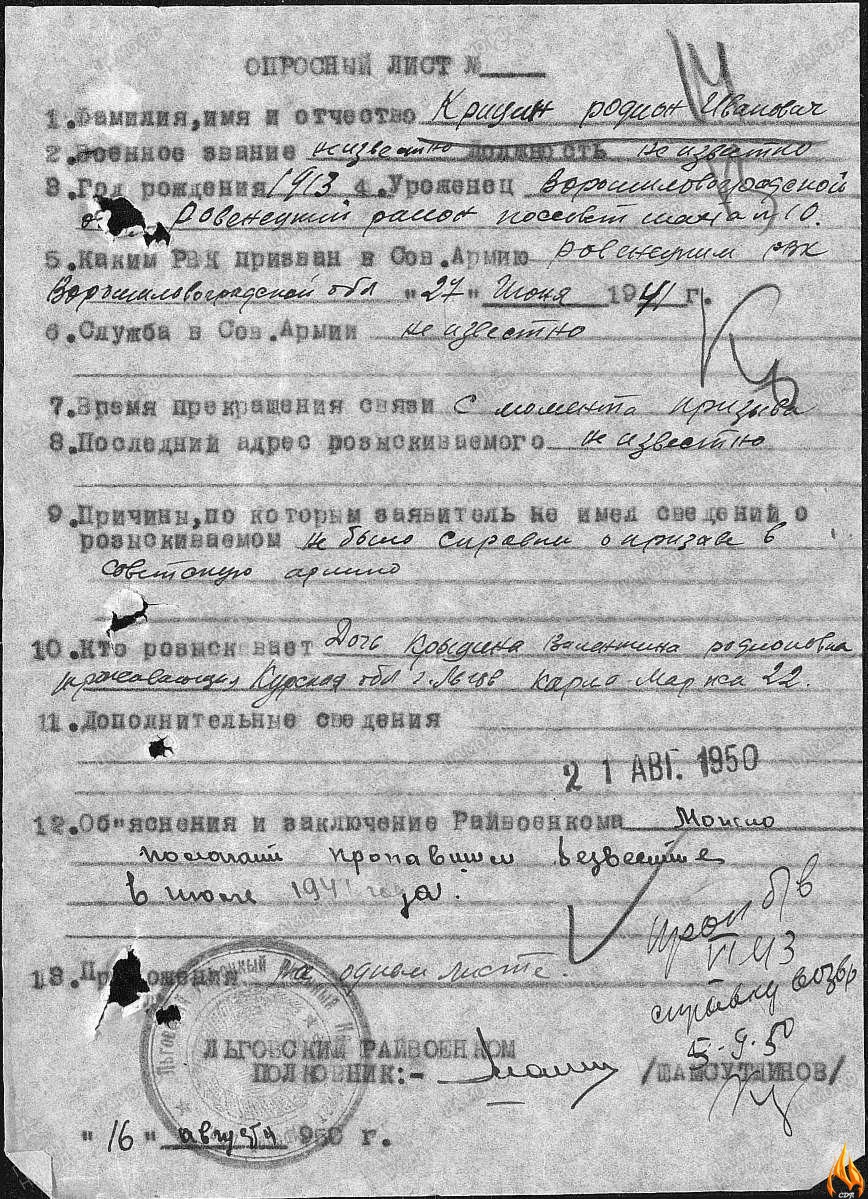 ОПРОСНЫЙ ЛИСТ №
1.Фамилия,имя и отчество Крицин родион Иванович
2.Военное звание неизвестно должность неизвестно
3.Год рождения 1913 4.Уроженец Ворошиловоградской
Ровенецкий район поссовет шахта №10.
5.Каким РВК призван в Сов.Армию ровенецким рвк
Ворошиловоградской обл "27" Июня 1941 г.
6.Служба в Сов.Армии неизвестно
7.Время прекращения связи с момента призыва
8.Последний адрес розыскиваемого неизвестно
9.Причины,по которым заявитель не имел сведений о
розыскиваемом не было справки о призыве в
Советскую армию
10.Кто розыскивает Дочь Валентина родионовна
проживающия Курская обл г.Льгов Карла Маркса 22.
11.Дополнительные сведения
21 АВГ. 1950
12.Об"яснения и заключение Райвоенкома Можно
пологать пропавшим безвестие
в июле 1941 года.
проп б/в
VI 43
справку возвр
5-9-50
13.Приложения на одном листе.
ЛЬГОВСКИЙ РАЙВОЕНКОМ
ПОЛКОВНИК:- /ШАМСУТДИНОВ/
"16" августа 1950 г.